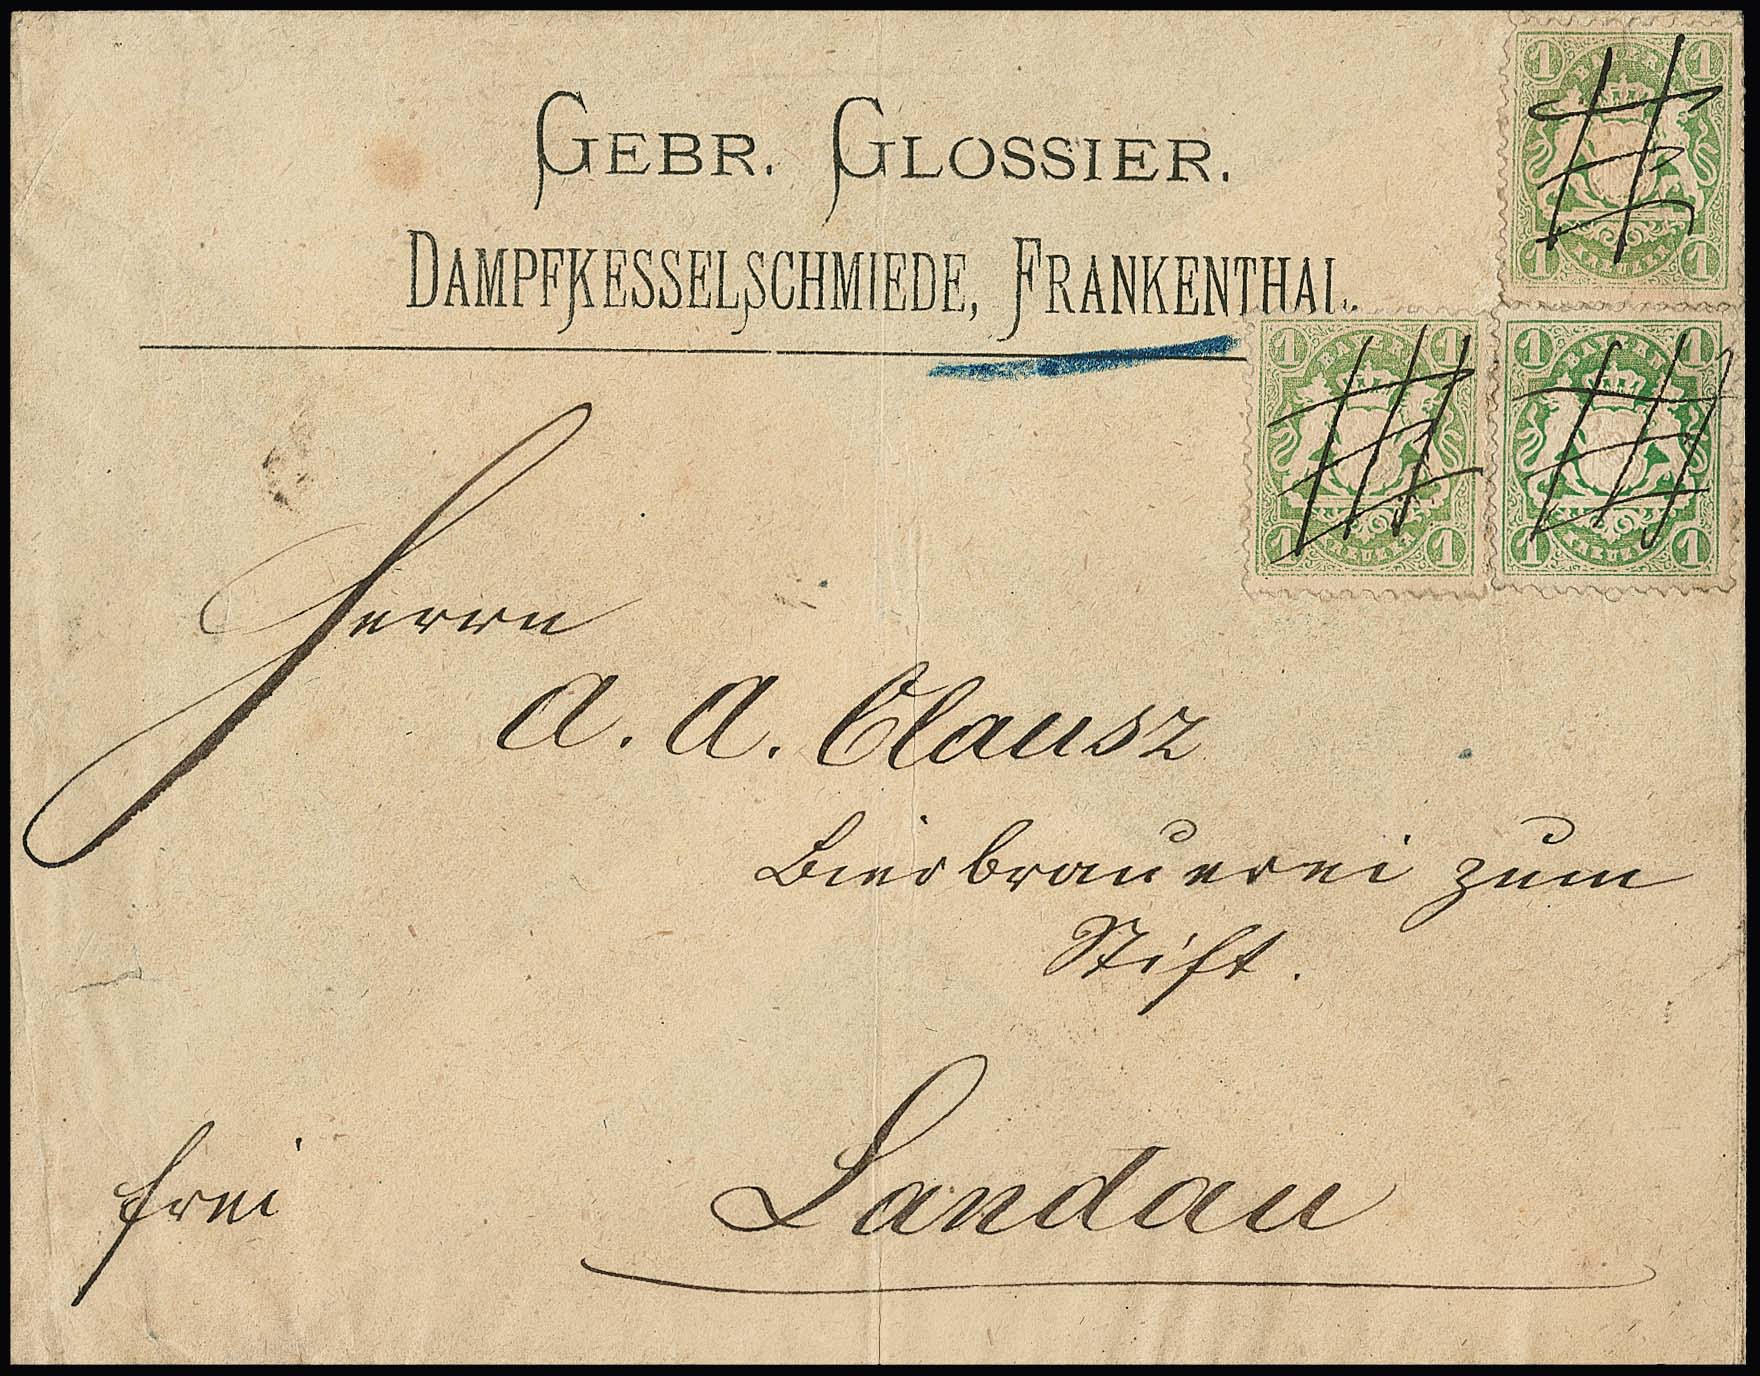 GEBR. GLOSSIER.
DAMPFKESSELSCHMIEDE, FRANKENTHAL.
1 BAYERN 1
1 KREUZER 1
1 BAYERN 1
1 KREUZER 1
1 BAYERN 1
1 KREUZER 1
Herrn
A. A. Clausz
Bierbrauerei zum
Stift.
frei
Landau